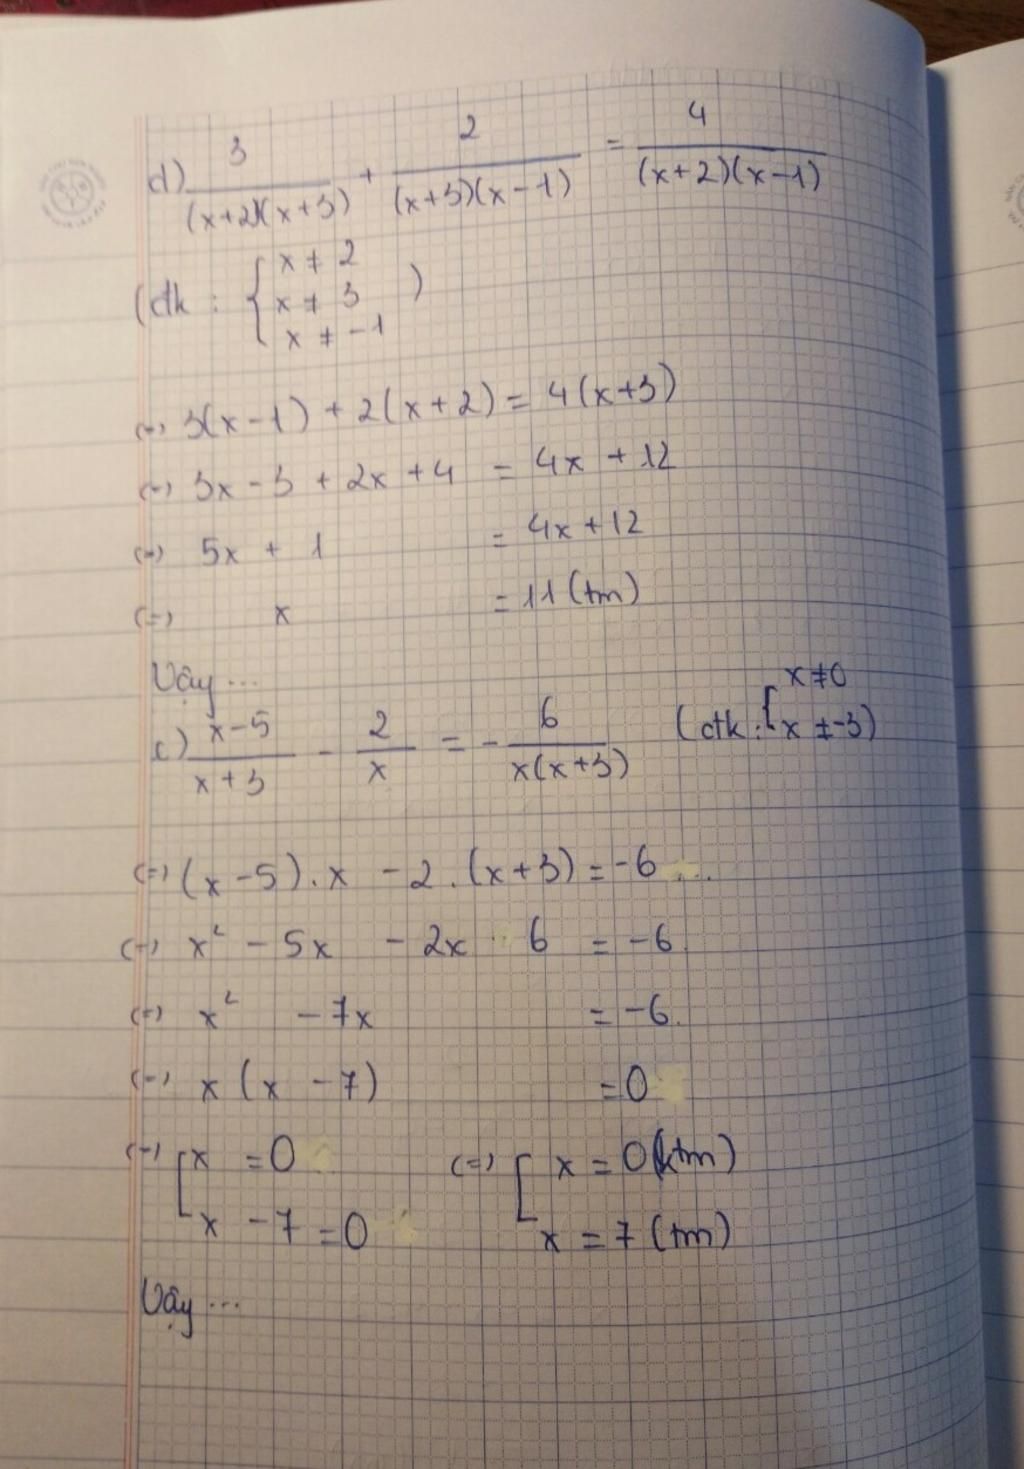 d) 3/((x+2)(x+3)) + 2/((x+3)(x-1)) = 4/((x+2)(x-1))
(đk : { x ≠ 2
x ≠ 3
x ≠ -1 )
(=) 3(x-1) + 2(x+2) = 4(x+3)
(=) 3x - 3 + 2x + 4 = 4x + 12
(=) 5x + 1 = 4x + 12
(=) x = 11 (tm)
Vậy ...
c) (x-5)/(x+3) - 2/x = - 6/(x(x+3)) (đk : { x ≠ 0
x ≠ -3)
(=) (x-5).x - 2.(x+3) = -6
(=) x² - 5x - 2x 6 = -6
(=) x² - 7x = -6.
(=) x(x-7) = 0
(=) [ x = 0 (=) [ x = 0 (ktm)
x - 7 = 0 x = 7 (tm)
Vậy ...